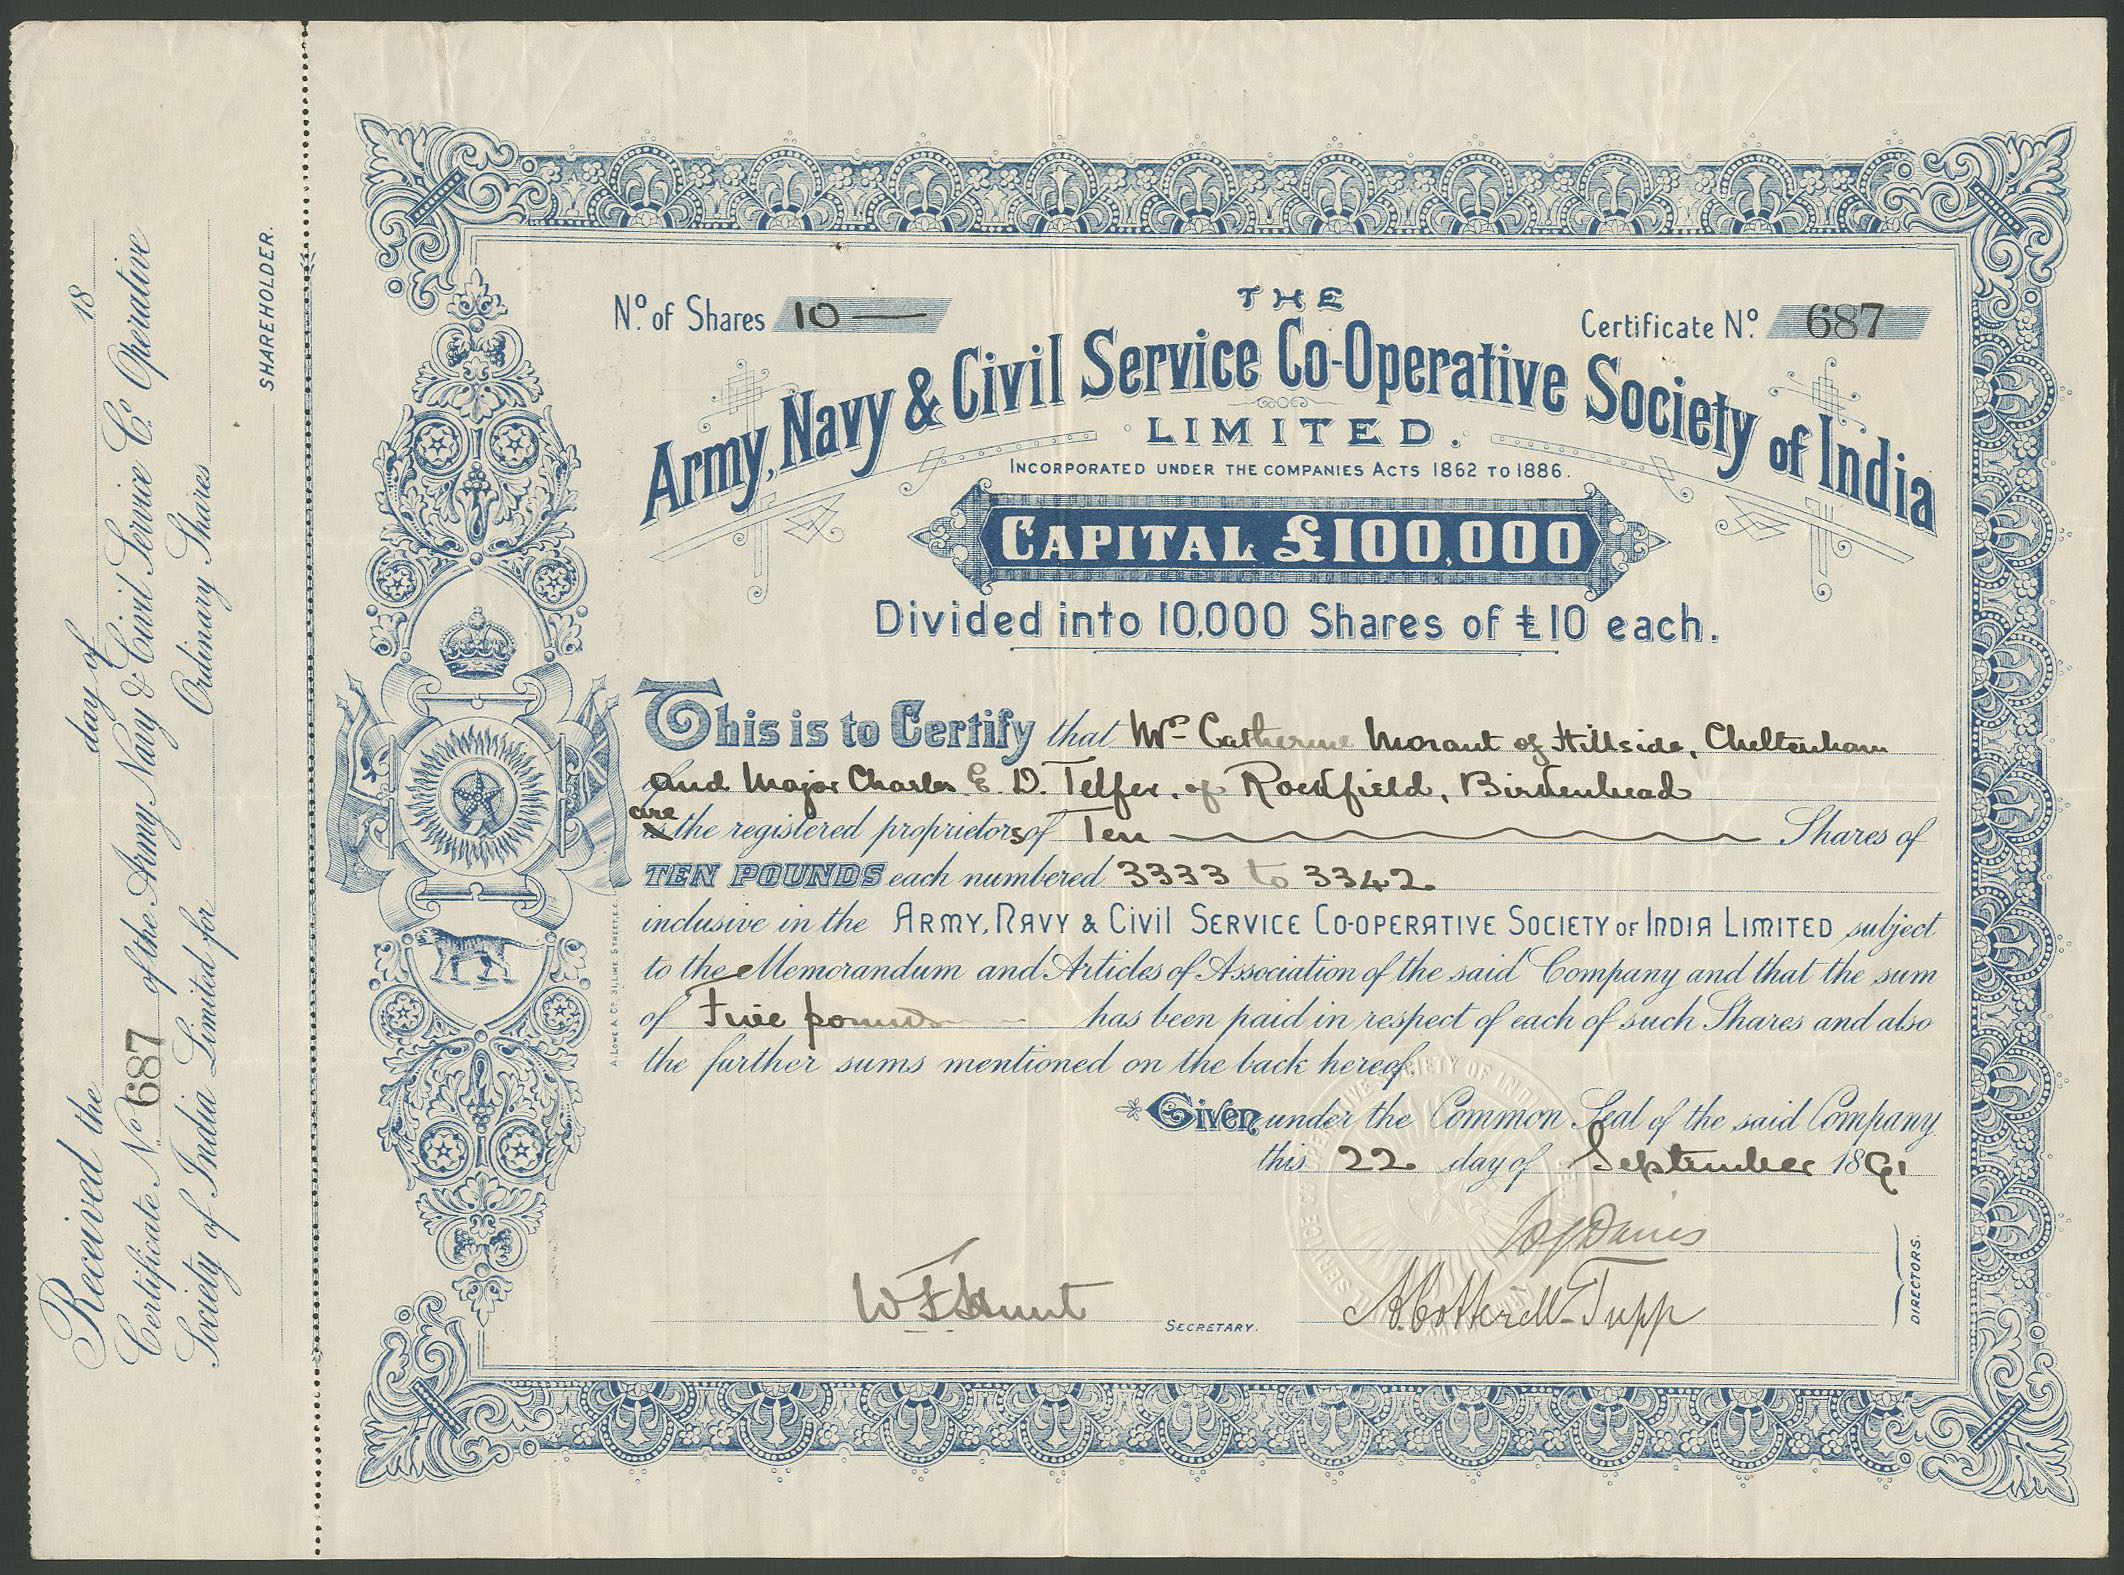 Received the day of 18
Certificate No 687 of the Army, Navy & Civil Service Co. Operative
Society of India Limited for Ordinary Shares
SHAREHOLDER.
No. of Shares 10
THE
Certificate No. 687
Army, Navy & Civil Service Co-Operative Society of India
LIMITED.
INCORPORATED UNDER THE COMPANIES ACTS 1862 TO 1886.
CAPITAL £100,000
Divided into 10,000 Shares of £10 each.
This is to Certify that Mrs Catherine Morant of Hillside, Cheltenham
and Major Charles E. D. Telfer, of Rockfield, Birkenhead
are is the registered proprietors of Ten Shares of
TEN POUNDS each numbered 3333 to 3342
inclusive in the ARMY, NAVY & CIVIL SERVICE CO-OPERATIVE SOCIETY OF INDIA LIMITED subject
to the Memorandum and Articles of Association of the said Company and that the sum
of Five pounds has been paid in respect of each of such Shares and also
the further sums mentioned on the back hereof
Given under the Common Seal of the said Company
this 22 day of September 1891
Davies
W F Hunt
SECRETARY.
A. Cotterell-Tupp
DIRECTORS.
A. LOWE & CO. 31, LIME STREET, E.C.